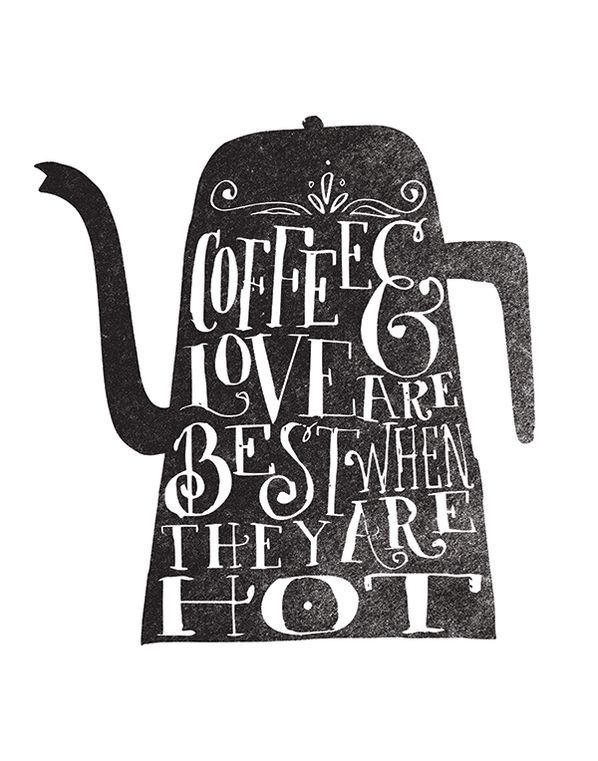 COFFEE &
LOVE ARE
BEST WHEN
THEY ARE
HOT